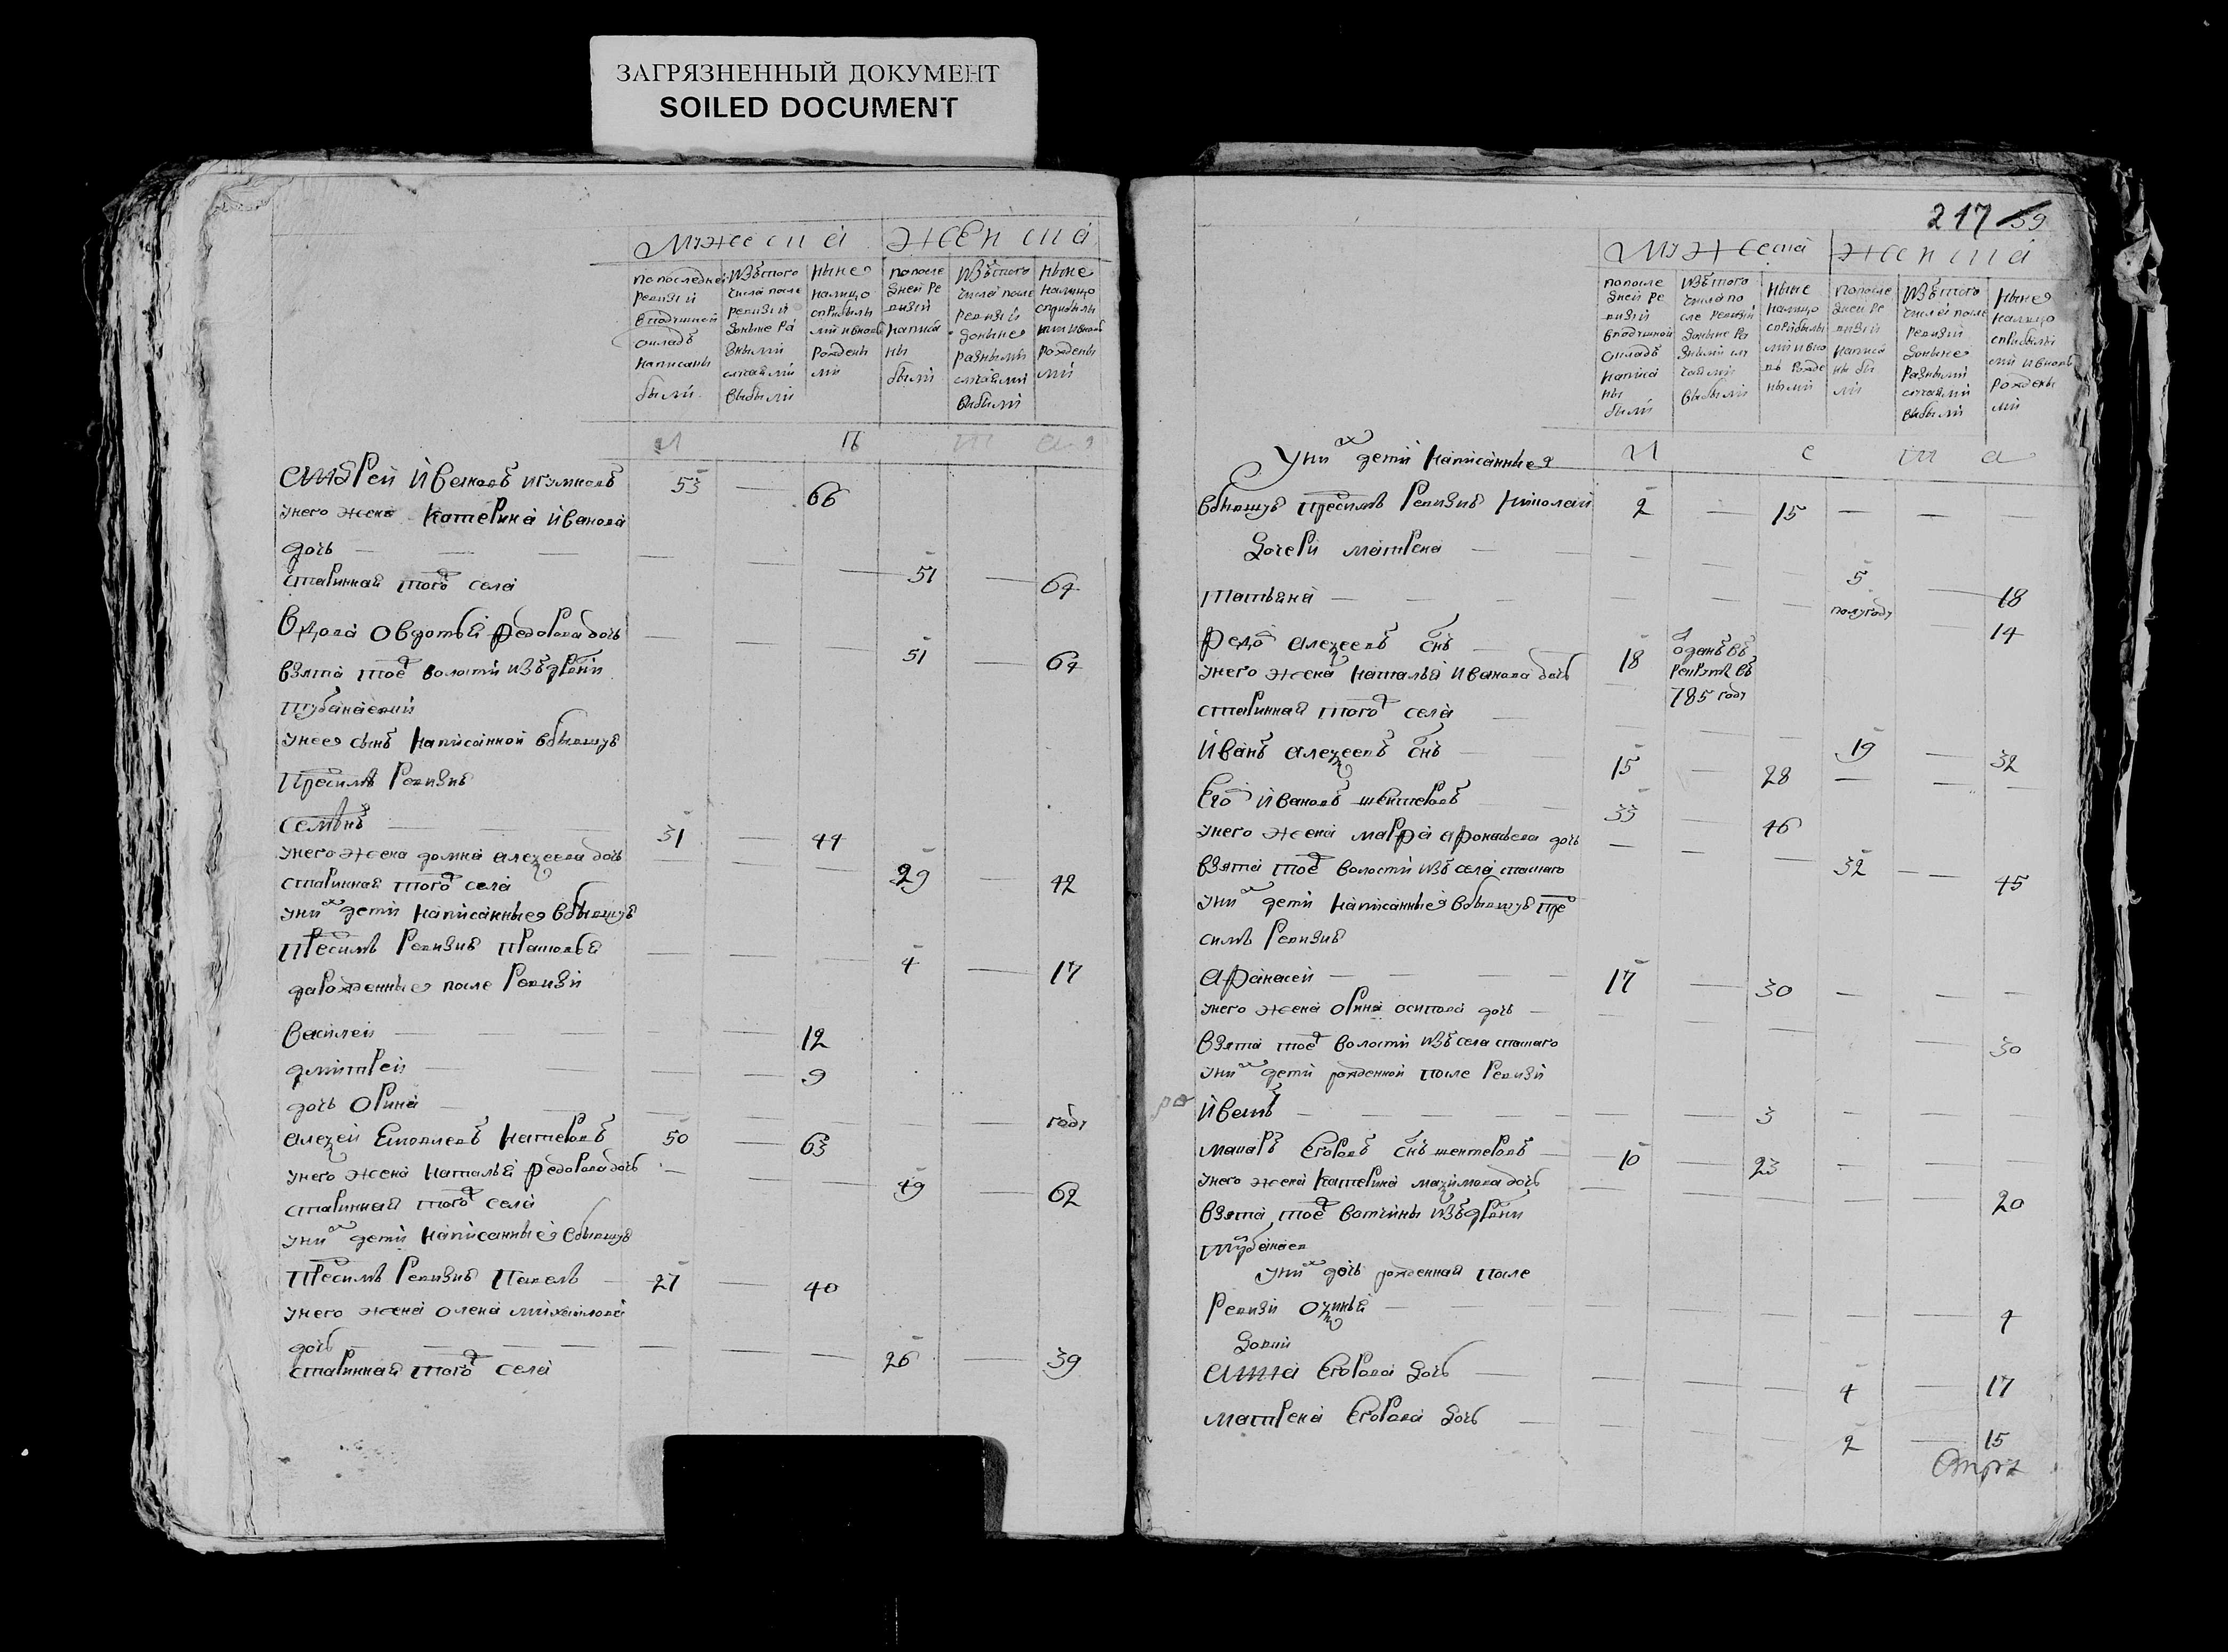 ЗАГРЯЗНЕННЫЙ ДОКУМЕНТ
SOILED DOCUMENT
Мужеска Женска
по последней ревизии в подушной окладъ написаны были
изъ того числа после ревизии доныне разными случаями выбыли
ныне налицо с прибылыми и вновь рожденными
по последней ревизии написаны были
изъ того числа после ревизии доныне разными случаями выбыли
ныне налицо с прибылыми и вновь рожденными
Андрей Ивановъ 53 — 66
у него жена Катерина Иванова
дочь — — —
старинная того села 51 — 64
Вдова Овдотья федорова дочь
взята тое волости изъ дрвни 51 — 64
у нее сынъ написанной в бывшую
пред симъ Ревизию
Семенъ 31 — 44
у него жена домна алеѯеева дочь
старинная того села 29 — 42
у них дети написанные в бывшую
пред симъ Ревизию Прасковья 4 — 17
да рожденные после Ревизи
Василеи — 12
дмитреи — 9
дочь Орина — году
алеѯей 50 — 63
у него жена наталья федорова дочь
старинная того села 49 — 62
у них дети написанные в бывшую
пред симъ Ревизию Павелъ 27 — 40
у него жена олена михаилова
дочь — — —
старинная того села 26 — 39
217 59
Мужеска Женска
по последней ревизии в подушной окладъ написаны были
изъ того числа после ревизии доныне разными случаями выбыли
ныне налицо с прибылыми и вновь рожденными
по последней ревизии написаны были
изъ того числа после ревизии доныне разными случаями выбыли
ныне налицо с прибылыми и вновь рожденными
У них дети написанные л е т а
в бывшую пред симъ Ревизию николаи 2 — 15
дочери матрена — 5 — 18
татьяна — полугоду 14
федо алеѯеевъ снъ 18 отданъ въ рекруты въ 785 году
у него жена наталья иванова дочь
старинная того села 19 — 32
Иванъ алеѯеевъ снъ 15 — 28
Его Ивановъ 33 — 46
у него жена марфа афонасьева дочь
взята тое волости изъ села 32 — 45
у них дети написанные в бывшую пре
симъ Ревизию
афанасеи 17 — 30
у него жена орина осипова дочь
взята тое волости изъ села 30
у них дети рожденной после Ревизи
Иванъ — 3
макаръ Егоровъ снъ 10 — 23
у него жена катерина маѯимова дочь
взята тое вотчины изъ дрвни 20
у них дочь рожденная после
Ревизи — 4
анна Егорова дочь 4 — 17
матрена Егорова дочь 2 — 15